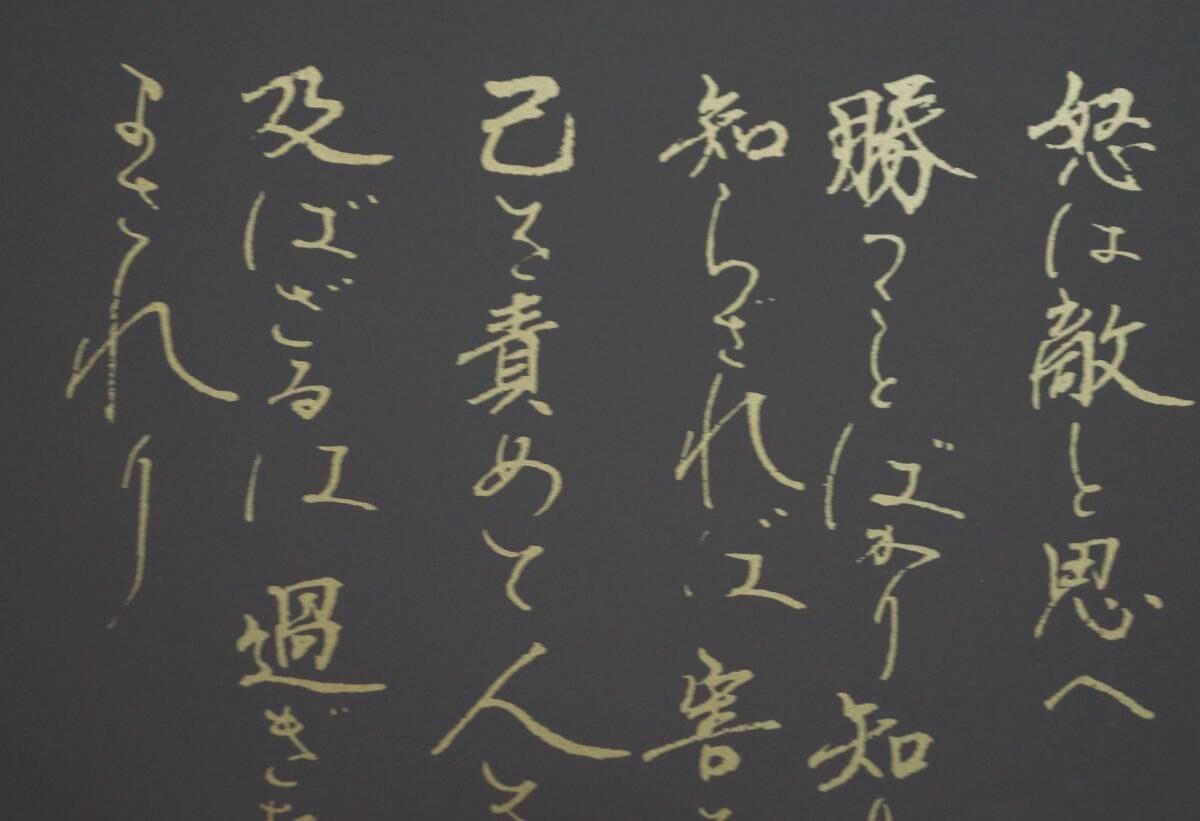 怒は敵と思へ
勝つことばかり知
知らざれば害
己を責めて人を
及ばざるは過ぎ
まされり